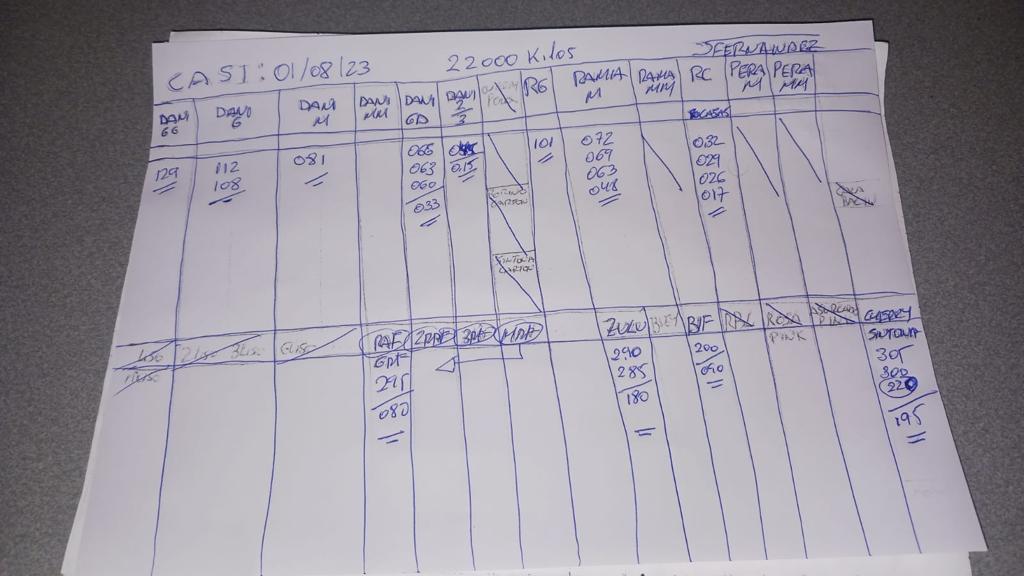 CASI: 01/08/23 22000 Kilos JFERNANDEZ
DANI GG DANI G DANI M DANI MM DANI GD DANI 2/3 RG RAMA M RAMA MM RC PERA M PERA MM
ROCASAS
129 112 081 065 015 101 072 032
108 063 069 029
060 063 026
033 048 017
CARTON
SINTONA
CARTON
LISO 2LISO 3LISO GLISO RAF 2RAF 3RAF MRAF ZULU BIF ROSA PINK CHERRY SINTONA
295 290 200 305
080 285 090 300
180 220
195